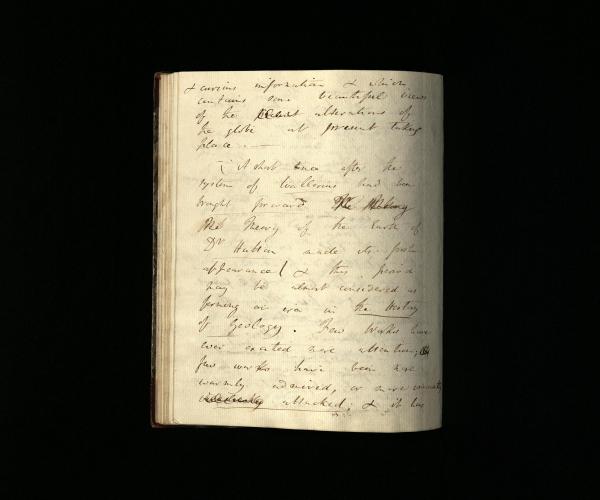 & curious information & which
contains some beautiful views
of the alterations of
the globe at present taking
place. —
A short time after the
system of Wallerius had been
brought forward
the Theory of the Earth of
Dr Hutton made its first
appearance & this period
may be almost considered as
forming an era in the History
of Geology. Few works have
ever excited more attention,
few works have been more
warmly admired, or more
attacked; & it has